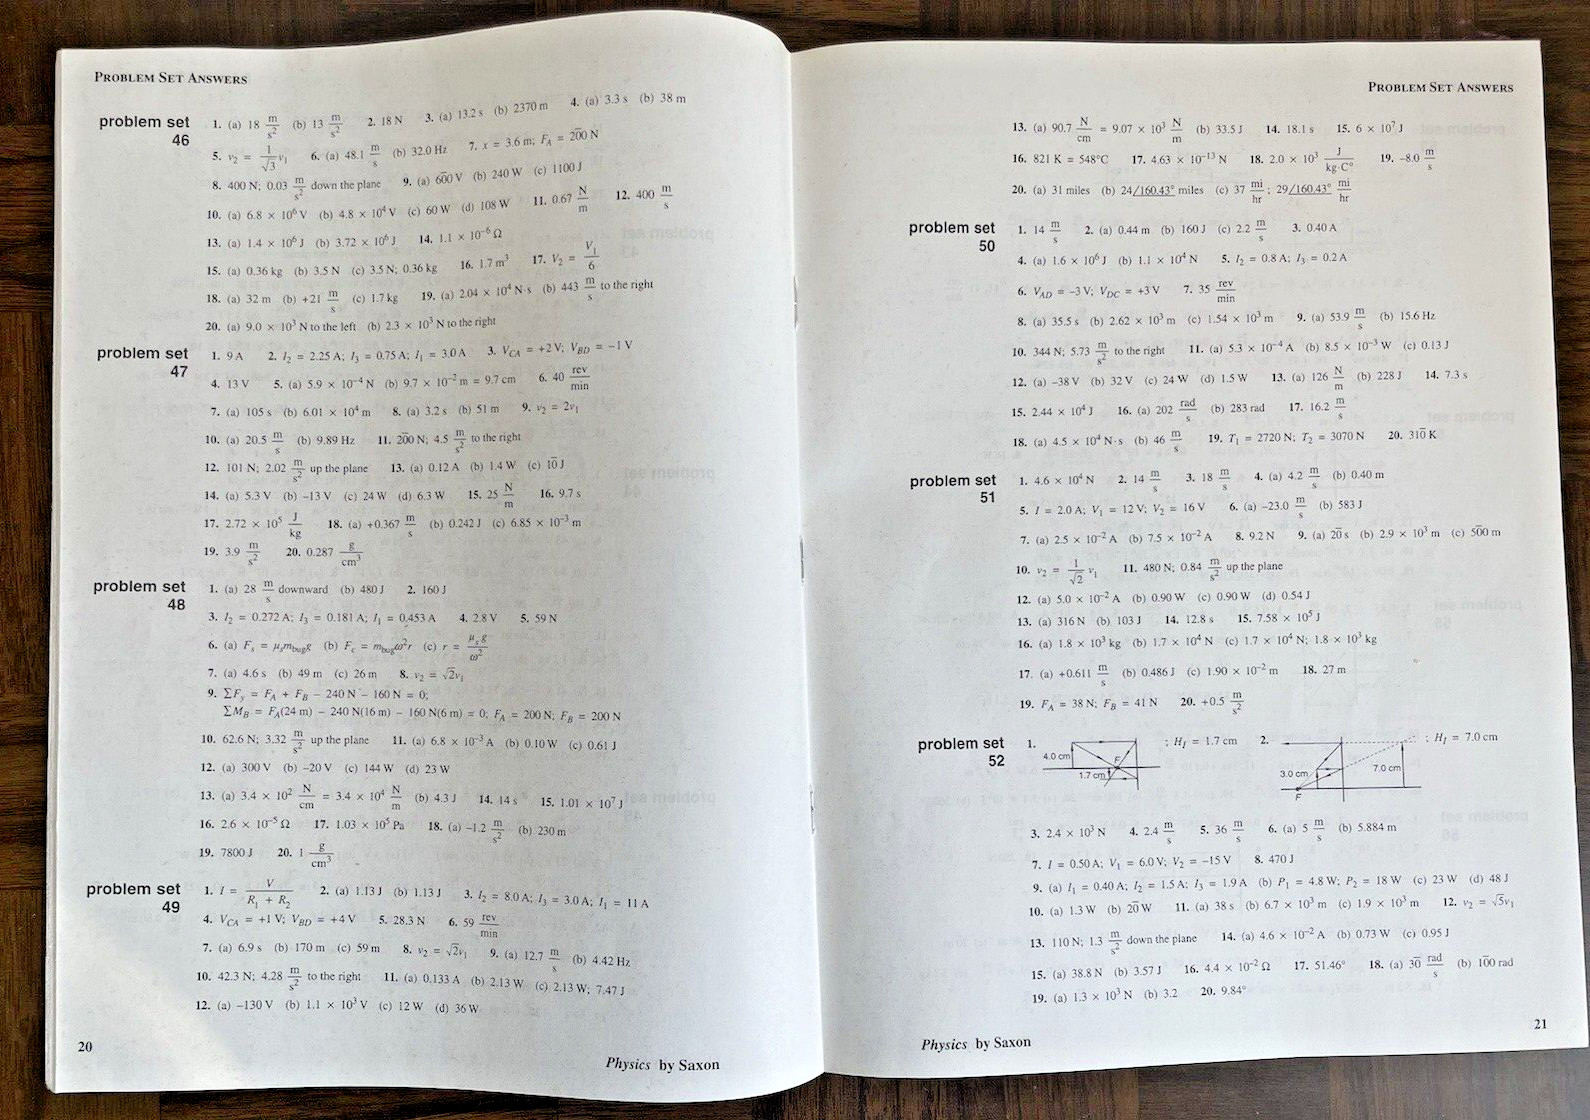 PROBLEM SET ANSWERS
problem set 46
1. (a) 18 m/s² (b) 13 m/s² 2. 18 N 3. (a) 13.2 s (b) 2370 m 4. (a) 3.3 s (b) 38 m
5. v₂ = 1/√3 v₁ 6. (a) 48.1 m/s (b) 32.0 Hz 7. x = 3.6 m; F_A = 20̅0 N
8. 400 N; 0.03 m/s² down the plane 9. (a) 60̅0 V (b) 240 W (c) 1100 J
10. (a) 6.8 × 10⁶ V (b) 4.8 × 10⁴ V (c) 60 W (d) 108 W 11. 0.67 N/m 12. 400 m/s
13. (a) 1.4 × 10⁶ J (b) 3.72 × 10⁶ J 14. 1.1 × 10⁻⁶ Ω
15. (a) 0.36 kg (b) 3.5 N (c) 3.5 N; 0.36 kg 16. 1.7 m³ 17. V₂ = V₁/6
18. (a) 32 m (b) +21 m/s (c) 1.7 kg 19. (a) 2.04 × 10⁴ N·s (b) 443 m/s to the right
20. (a) 9.0 × 10³ N to the left (b) 2.3 × 10³ N to the right
problem set 47
1. 9 A 2. I₂ = 2.25 A; I₃ = 0.75 A; I₁ = 3.0 A 3. V_CA = +2 V; V_BD = −1 V
4. 13 V 5. (a) 5.9 × 10⁻⁴ N (b) 9.7 × 10⁻² m = 9.7 cm 6. 40 rev/min
7. (a) 105 s (b) 6.01 × 10⁴ m 8. (a) 3.2 s (b) 51 m 9. v₂ = 2v₁
10. (a) 20.5 m/s (b) 9.89 Hz 11. 20̅0 N; 4.5 m/s² to the right
12. 101 N; 2.02 m/s² up the plane 13. (a) 0.12 A (b) 1.4 W (c) 10̅ J
14. (a) 5.3 V (b) −13 V (c) 24 W (d) 6.3 W 15. 25 N/m 16. 9.7 s
17. 2.72 × 10⁵ J/kg 18. (a) +0.367 m/s (b) 0.242 J (c) 6.85 × 10⁻³ m
19. 3.9 m/s² 20. 0.287 g/cm³
problem set 48
1. (a) 28 m/s downward (b) 480 J 2. 160 J
3. I₂ = 0.272 A; I₃ = 0.181 A; I₁ = 0.453 A 4. 2.8 V 5. 59 N
6. (a) F_s = μ_s m_bug g (b) F_c = m_bug ω²r (c) r = μ_s g/ω²
7. (a) 4.6 s (b) 49 m (c) 26 m 8. v₂ = √2v₁
9. ΣF_y = F_A + F_B − 240 N − 160 N = 0;
ΣM_B = F_A(24 m) − 240 N(16 m) − 160 N(6 m) = 0; F_A = 200 N; F_B = 200 N
10. 62.6 N; 3.32 m/s² up the plane 11. (a) 6.8 × 10⁻³ A (b) 0.10 W (c) 0.61 J
12. (a) 300 V (b) −20 V (c) 144 W (d) 23 W
13. (a) 3.4 × 10² N/cm = 3.4 × 10⁴ N/m (b) 4.3 J 14. 14 s 15. 1.01 × 10⁷ J
16. 2.6 × 10⁻⁵ Ω 17. 1.03 × 10⁵ Pa 18. (a) −1.2 m/s² (b) 230 m
19. 7800 J 20. 1 g/cm³
problem set 49
1. I = V/(R₁ + R₂) 2. (a) 1.13 J (b) 1.13 J 3. I₂ = 8.0 A; I₃ = 3.0 A; I₁ = 11 A
4. V_CA = +1 V; V_BD = +4 V 5. 28.3 N 6. 59 rev/min
7. (a) 6.9 s (b) 170 m (c) 59 m 8. v₂ = √2v₁ 9. (a) 12.7 m/s (b) 4.42 Hz
10. 42.3 N; 4.28 m/s² to the right 11. (a) 0.133 A (b) 2.13 W (c) 2.13 W; 7.47 J
12. (a) −130 V (b) 1.1 × 10³ V (c) 12 W (d) 36 W
20
Physics by Saxon
PROBLEM SET ANSWERS
13. (a) 90.7 N/cm = 9.07 × 10³ N/m (b) 33.5 J 14. 18.1 s 15. 6 × 10⁷ J
16. 821 K = 548°C 17. 4.63 × 10⁻¹³ N 18. 2.0 × 10³ J/kg·C° 19. −8.0 m/s
20. (a) 31 miles (b) 24/160.43° miles (c) 37 mi/hr; 29/160.43° mi/hr
problem set 50
1. 14 m/s 2. (a) 0.44 m (b) 160 J (c) 2.2 m/s 3. 0.40 A
4. (a) 1.6 × 10⁶ J (b) 1.1 × 10⁴ N 5. I₂ = 0.8 A; I₃ = 0.2 A
6. V_AD = −3 V; V_DC = +3 V 7. 35 rev/min
8. (a) 35.5 s (b) 2.62 × 10³ m (c) 1.54 × 10³ m 9. (a) 53.9 m/s (b) 15.6 Hz
10. 344 N; 5.73 m/s² to the right 11. (a) 5.3 × 10⁻⁴ A (b) 8.5 × 10⁻³ W (c) 0.13 J
12. (a) −38 V (b) 32 V (c) 24 W (d) 1.5 W 13. (a) 126 N/m (b) 228 J 14. 7.3 s
15. 2.44 × 10⁴ J 16. (a) 202 rad/s (b) 283 rad 17. 16.2 m/s
18. (a) 4.5 × 10⁴ N·s (b) 46 m/s 19. T₁ = 2720 N; T₂ = 3070 N 20. 310̅ K
problem set 51
1. 4.6 × 10⁴ N 2. 14 m/s 3. 18 m/s 4. (a) 4.2 m/s (b) 0.40 m
5. I = 2.0 A; V₁ = 12 V; V₂ = 16 V 6. (a) −23.0 m/s (b) 583 J
7. (a) 2.5 × 10⁻² A (b) 7.5 × 10⁻² A 8. 9.2 N 9. (a) 20̅ s (b) 2.9 × 10³ m (c) 50̅0 m
10. v₂ = 1/√2 v₁ 11. 480 N; 0.84 m/s² up the plane
12. (a) 5.0 × 10⁻² A (b) 0.90 W (c) 0.90 W (d) 0.54 J
13. (a) 316 N (b) 103 J 14. 12.8 s 15. 7.58 × 10⁵ J
16. (a) 1.8 × 10³ kg (b) 1.7 × 10⁴ N (c) 1.7 × 10⁴ N; 1.8 × 10³ kg
17. (a) +0.611 m/s (b) 0.486 J (c) 1.90 × 10⁻² m 18. 27 m
19. F_A = 38 N; F_B = 41 N 20. +0.5 m/s²
problem set 52
1. 4.0 cm 1.7 cm F ; H_I = 1.7 cm 2. 3.0 cm F 7.0 cm ; H_I = 7.0 cm
3. 2.4 × 10³ N 4. 2.4 m/s 5. 36 m/s 6. (a) 5 m/s (b) 5.884 m
7. I = 0.50 A; V₁ = 6.0 V; V₂ = −15 V 8. 470 J
9. (a) I₁ = 0.40 A; I₂ = 1.5 A; I₃ = 1.9 A (b) P₁ = 4.8 W; P₂ = 18 W (c) 23 W (d) 48 J
10. (a) 1.3 W (b) 20̅ W 11. (a) 38 s (b) 6.7 × 10³ m (c) 1.9 × 10³ m 12. v₂ = √5v₁
13. 110 N; 1.3 m/s² down the plane 14. (a) 4.6 × 10⁻² A (b) 0.73 W (c) 0.95 J
15. (a) 38.8 N (b) 3.57 J 16. 4.4 × 10⁻² Ω 17. 51.46° 18. (a) 30̅ rad/s (b) 10̅0 rad
19. (a) 1.3 × 10³ N (b) 3.2 20. 9.84°
21
Physics by Saxon